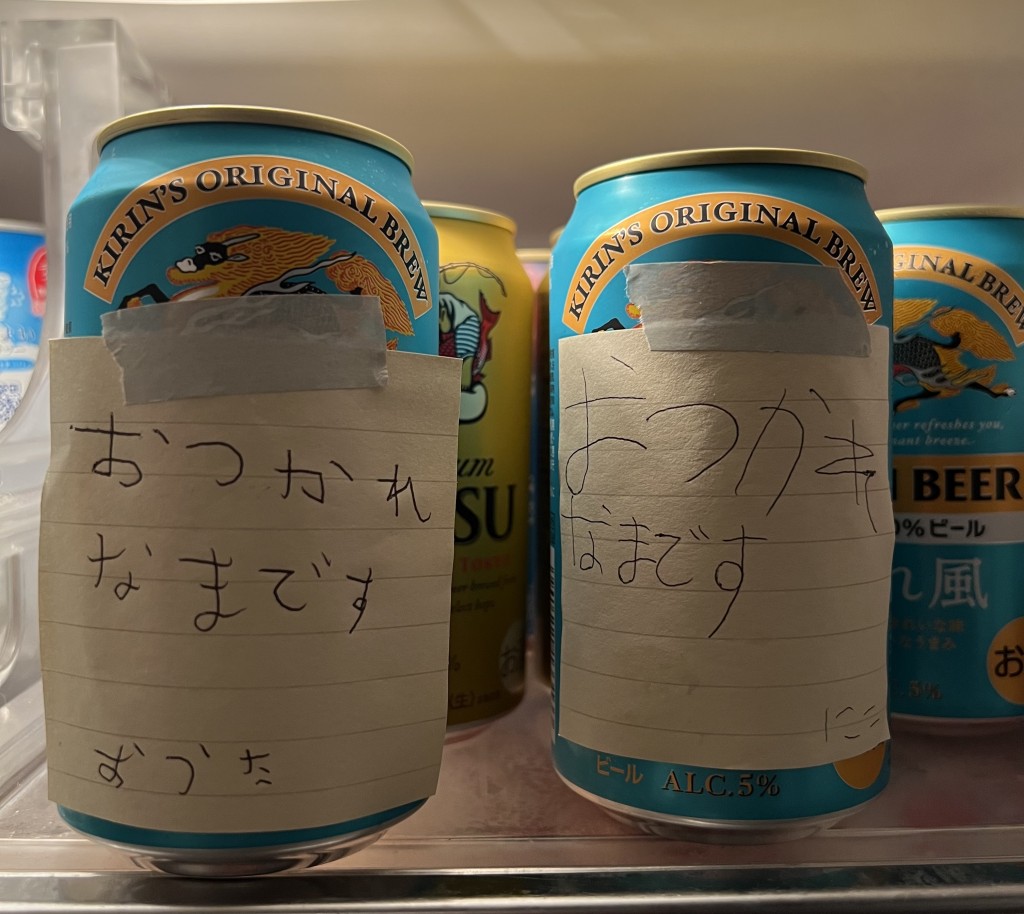 KIRIN'S ORIGINAL BREW
おつかれ
なまです
おづた
SU
KIRIN'S ORIGINAL BREW
おつかれ
なまです
ビール ALC.5%
GINAL BREW
er refreshes you,
BEER
0%ビール
れ風
5%
お